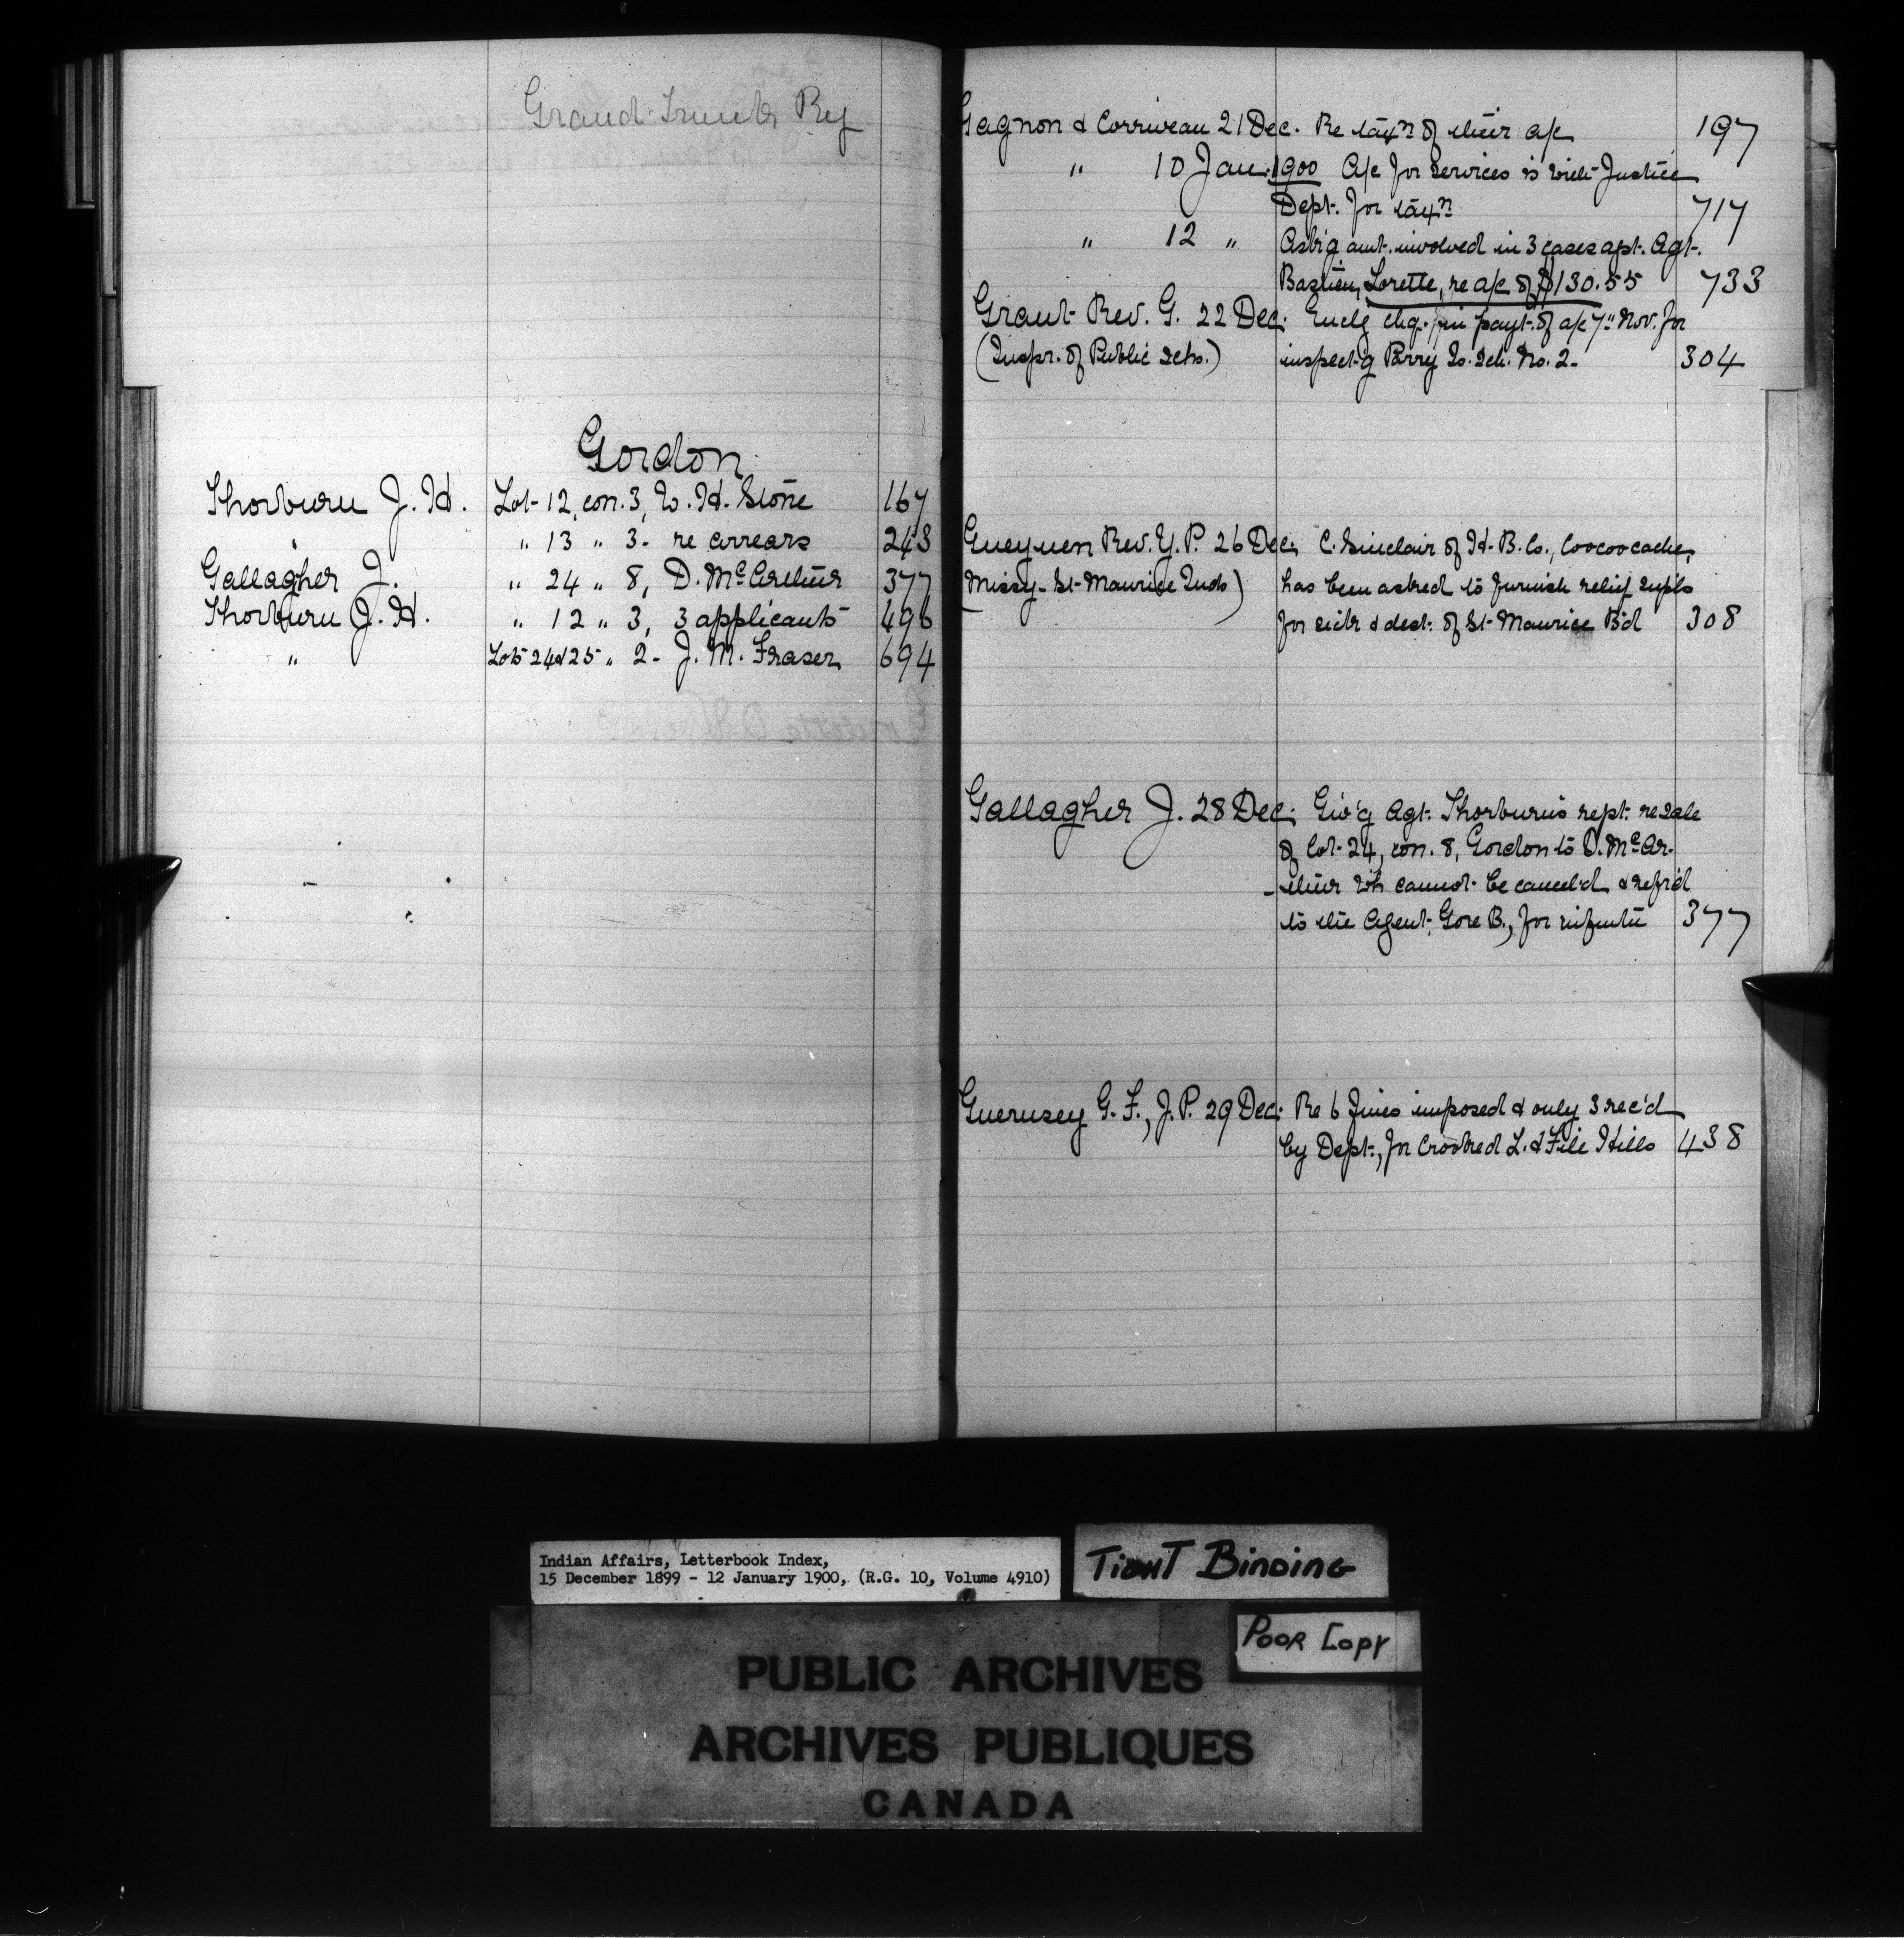 Grand Trunk Ry
Gordon
Thorburn J. H. Lot 12, con. 3, W. H. Stone 167
" " 13 " 3 - re arrears 243
Gallagher J. " 24 " 8, D. McArthur 377
Thorburn J. H. " 12 " 3, 3 applicants 496
" Lots 24 & 25 " 2 - J. M. Fraser 694
Gagnon & Corriveau 21 Dec. Re taxn of their a/c 197
" 10 Jan. 1900 A/c for services is with Justice
Dept. for taxn 717
" 12 " Ask'g amt. involved in 3 cases agt. Agt.
Bastien, Lorette, re a/c of $130.55 733
Grant Rev. G. 22 Dec. Enclg chq. in payt. of a/c 7" Nov. for
(Inspr. of Public Schs.) inspect-g Parry Is. Sch. No. 2. 304
Gueguen Rev. J. P. 26 Dec. C. Sinclair of H. B. Co., Coocoocache,
(Missy - St Maurice Inds) has been asked to furnish relief supls
for sick & dest. of St Maurice Bd 308
Gallagher J. 28 Dec. Giv'g Agt. Thorburn's rept. re sale
of lot 24, con. 8, Gordon to D. McAr-
-thur wh cannot be cancel'd & refr'd
to the Agent, Gore B., for 377
Guernsey G. F., J. P. 29 Dec. Re 6 fines imposed & only 3 rec'd
by Dept., for Crooked L. & File Hills 438
Indian Affairs, Letterbook Index,
15 December 1899 - 12 January 1900, (R.G. 10, Volume 4910)
TIGHT BINDING
POOR COPY
PUBLIC ARCHIVES
ARCHIVES PUBLIQUES
CANADA